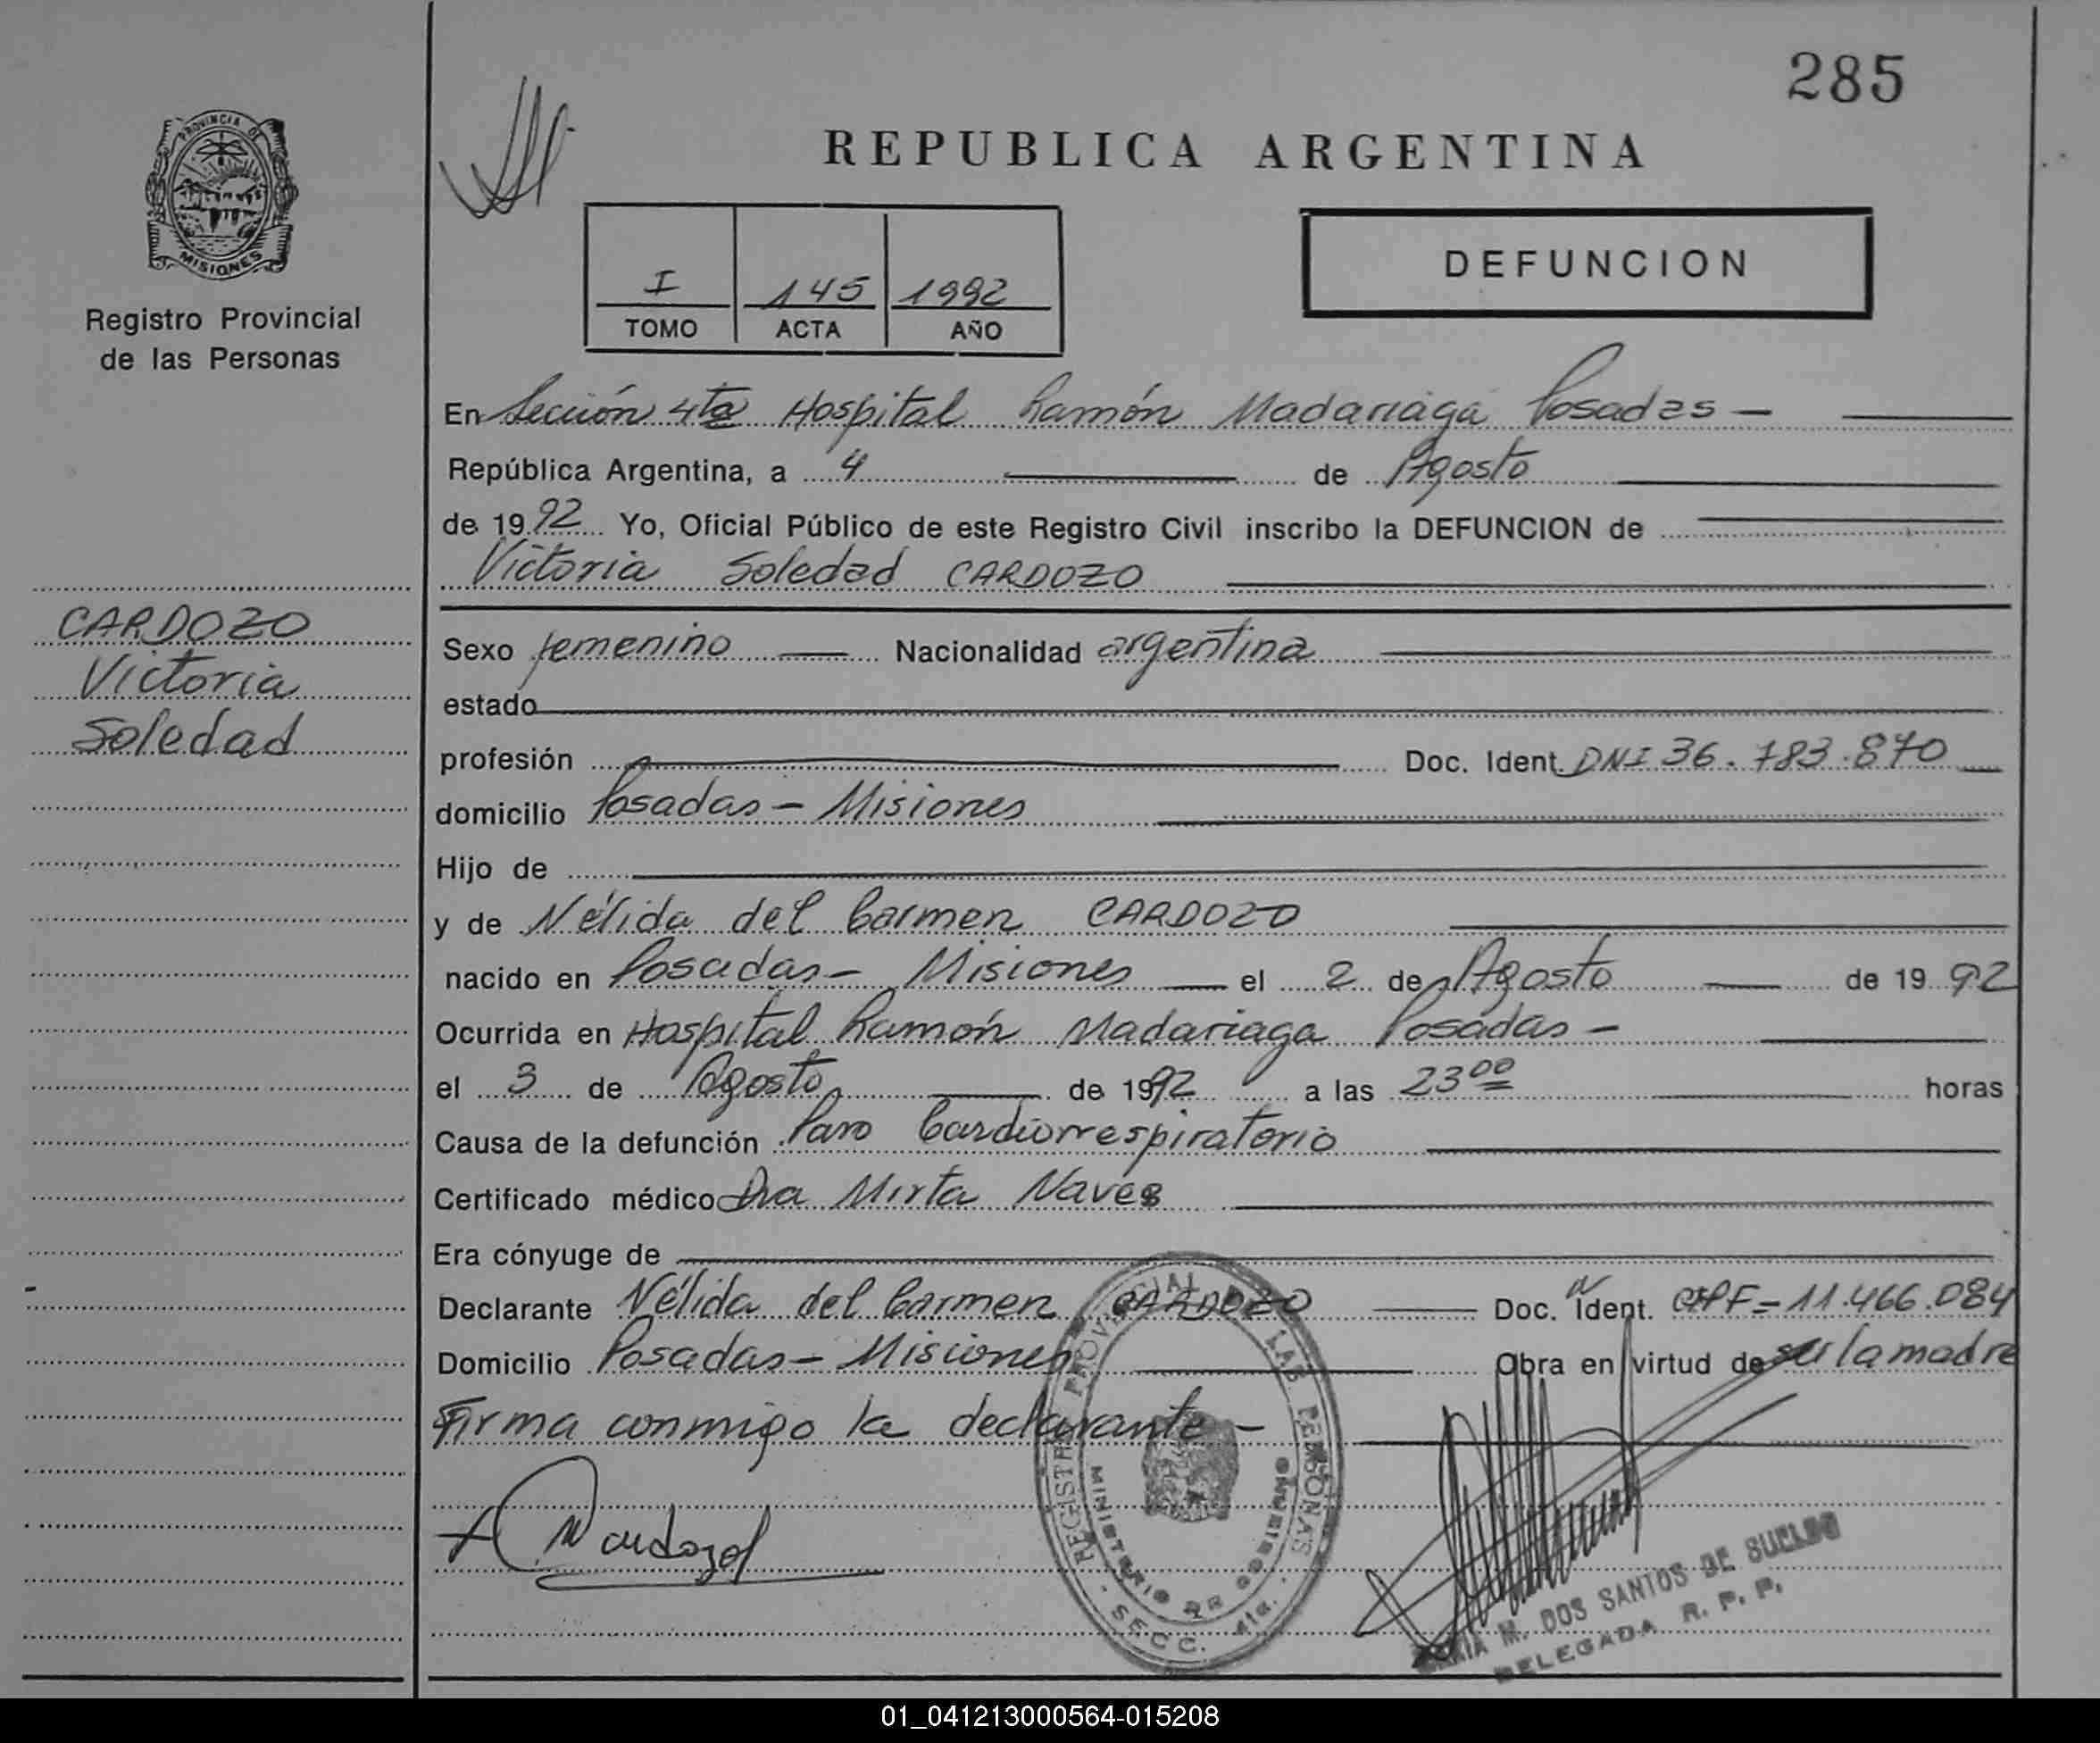 285
PROVINCIA DE
MISIONES
Registro Provincial
de las Personas
REPUBLICA ARGENTINA
I 145 1992
TOMO ACTA AÑO
DEFUNCION
En Sección 4ta Hospital Ramón Madariaga Posadas —
República Argentina, a 4 de Agosto
de 1992 Yo, Oficial Público de este Registro Civil inscribo la DEFUNCION de
Victoria Soledad CARDOZO
CARDOZO
Victoria
Soledad
Sexo femenino Nacionalidad argentina
estado
profesión Doc. Ident. DNI 36.783.870
domicilio Posadas - Misiones
Hijo de
y de Nélida del Carmen CARDOZO
nacido en Posadas - Misiones el 2 de Agosto de 1992
Ocurrida en Hospital Ramón Madariaga Posadas -
el 3 de Agosto de 1992 a las 23 00 horas
Causa de la defunción Paro Cardiorrespiratorio
Certificado médico Dra Mirta Naves
Era cónyuge de
Declarante Nélida del Carmen CARDOZO Doc. Ident. 11.466.084
Domicilio Posadas - Misiones Obra en virtud de ser la madre
Firma conmigo la declarante -
REGISTRO PROVINCIAL DE LAS PERSONAS
MINISTERIO DE GOBIERNO
SECC. 4ta.
M. DOS SANTOS DE SUELDO
DELEGADA R. P. P.
01_041213000564-015208